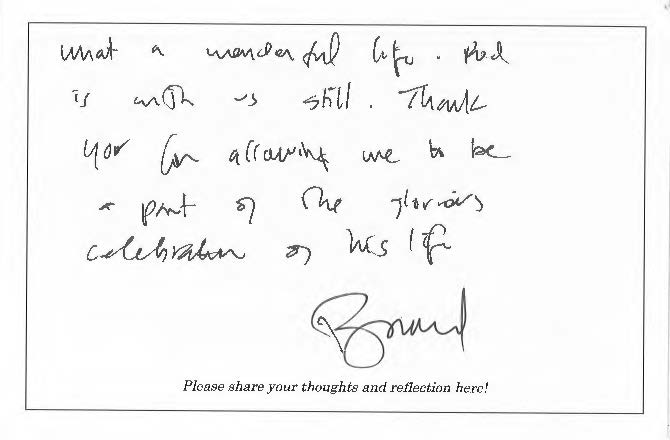 What a wonderful life. Rod
is with us still. Thank
you for allowing me to be
a part of the glorious
celebration of his life
Please share your thoughts and reflection here!